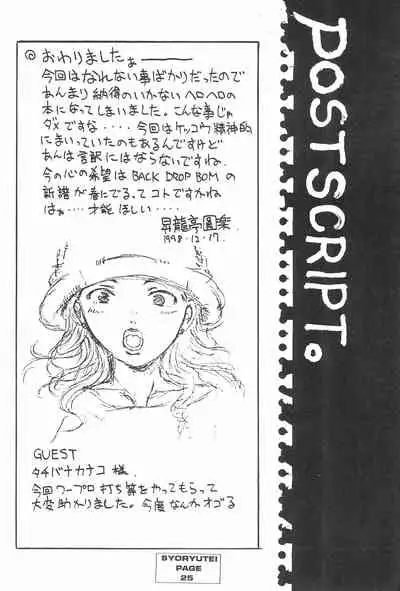 POSTSCRIPT。
◎おわりましたぁー
今回はなれない事ばかりだったので
あんまり納得のいかないヘロヘロの
本になってしまいました。こんな事じゃ
ダメですな・・・・今回はケッコウ精神的
にまいっていたのもあるんですけど
あんま言訳にはならないですね。
今の心の希望は BACK DROP BOM の
新譜が春にでるってコトですかね
はぁ・・・才能ほしい・・・・
昇龍亭圓楽
1998.12.17.
GUEST
タチバナカナコ 様.
今回ワープロ打ち等をやってもらって
大変助かりました。今度なんかオゴる
SYORYUTEI
PAGE
25